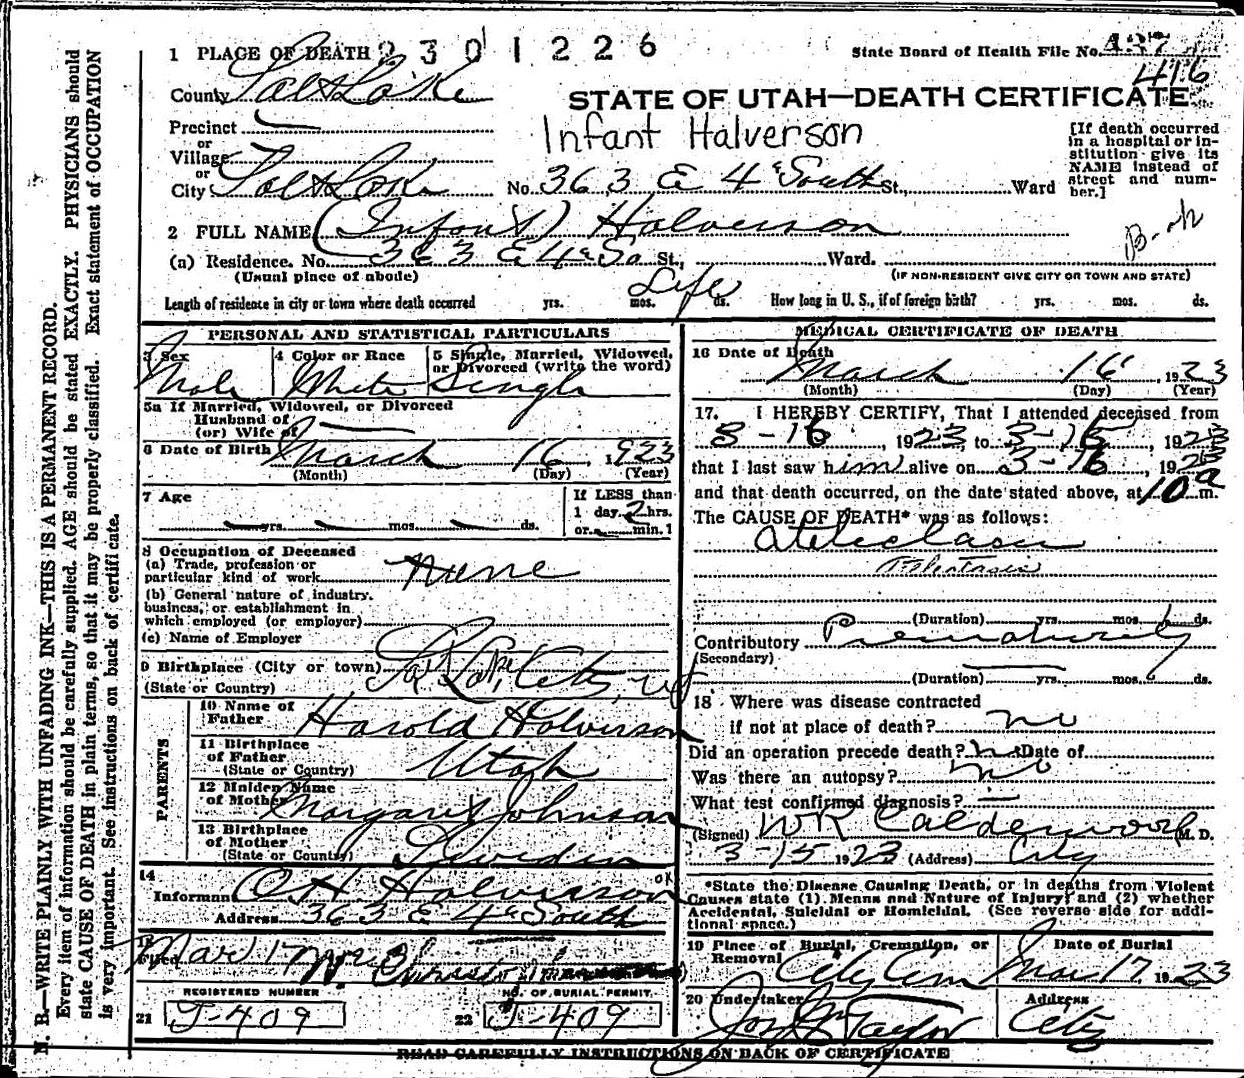 1 PLACE OF DEATH 2301226
State Board of Health File No. 437
416
County Salt Lake
STATE OF UTAH—DEATH CERTIFICATE
Infant Halverson
Precinct
or
Village
or
City Salt Lake No. 363 E 4 South St., Ward
[If death occurred
in a hospital or in-
stitution give its
NAME instead of
street and num-
ber.]
2 FULL NAME (Infant) Halverson
(a) Residence. No. 363 E 4 So St., Ward.
(Usual place of abode) (IF NON-RESIDENT GIVE CITY OR TOWN AND STATE)
Length of residence in city or town where death occurred yrs. mos. Life ds. How long in U. S., if of foreign birth? yrs. mos. ds.
PERSONAL AND STATISTICAL PARTICULARS
3 Sex Male
4 Color or Race White
5 Single, Married, Widowed,
or Divorced (write the word)
Single
5a If Married, Widowed, or Divorced
Husband of
(or) Wife of
6 Date of Birth March 16, 1923
(Month) (Day) (Year)
7 Age yrs. mos. ds.
If LESS than
1 day 2 hrs.
or min.
8 Occupation of Deceased
(a) Trade, profession or
particular kind of work none
(b) General nature of industry,
business, or establishment in
which employed (or employer)
(c) Name of Employer
9 Birthplace (City or town) Salt Lake City, Ut
(State or Country)
PARENTS
10 Name of
Father Harold Halverson
11 Birthplace
of Father
(State or Country) Utah
12 Maiden Name
of Mother Margaret Johnson
13 Birthplace
of Mother
(State or Country) Sweden
14
Informant O H Halverson OK
Address 363 E 4 South
15
Filed Mar 17
REGISTERED NUMBER
21 J-409
NO. OF BURIAL PERMIT
22 J-409
MEDICAL CERTIFICATE OF DEATH
16 Date of Death
March 16 1923
(Month) (Day) (Year)
17. I HEREBY CERTIFY, That I attended deceased from
3-16, 1923 to 3-16, 1923
that I last saw him alive on 3-16, 1923
and that death occurred, on the date stated above, at 10 a m.
The CAUSE OF DEATH* was as follows:
(Duration) yrs. mos. ds.
Contributory Prematurity
(Secondary)
(Duration) yrs. mos. ds.
18 Where was disease contracted
if not at place of death? no
Did an operation precede death? no Date of
Was there an autopsy? no
What test confirmed diagnosis? —
(Signed) W R Calderwood M. D.
3-15 1923 (Address) City
*State the Disease Causing Death, or in deaths from Violent
Causes state (1) Means and Nature of Injury; and (2) whether
Accidental, Suicidal or Homicidal. (See reverse side for addi-
tional space.)
19 Place of Burial, Cremation, or
Removal City Cem
Date of Burial
Mar. 17 1923
20 Undertaker
Taylor
Address
City
READ CAREFULLY INSTRUCTIONS ON BACK OF CERTIFICATE
N. B.—WRITE PLAINLY WITH UNFADING INK—THIS IS A PERMANENT RECORD.
Every item of information should be carefully supplied. AGE should be stated EXACTLY. PHYSICIANS should
state CAUSE OF DEATH in plain terms, so that it may be properly classified. Exact statement of OCCUPATION
is very important. See instructions on back of certificate.